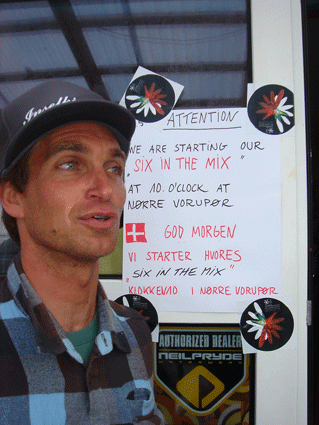 Insolki
ATTENTION
WE ARE STARTING OUR
"SIX IN THE MIX"
AT 10. O'CLOCK AT
NØRRE VORUPØR
GOD MORGEN
VI STARTER HVORES
"SIX IN THE MIX"
KLOKKEN 10 I NØRRE VORUPØR
AUTHORIZED DEALER
NEILPRYDE